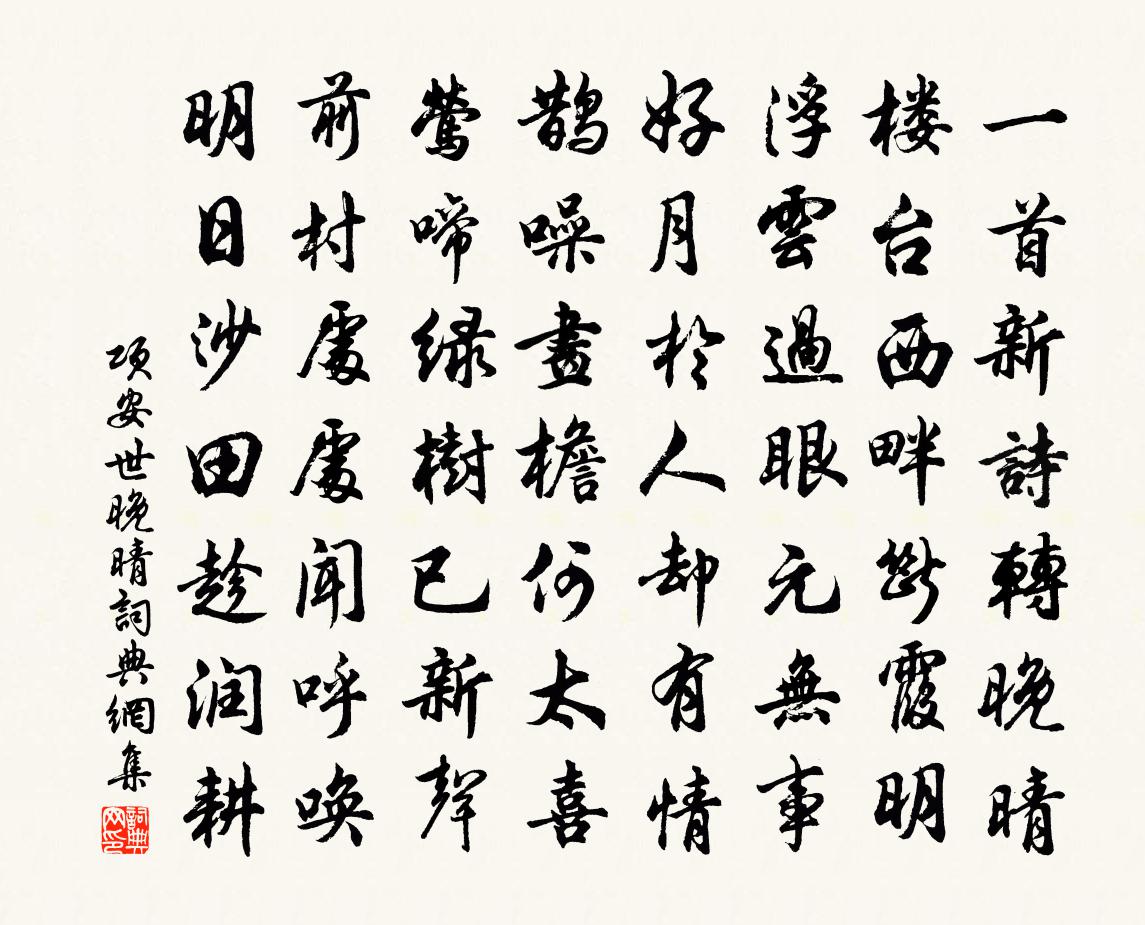 一首新詩轉晚晴
楼台西畔斷霞明
浮雲過眼元無事
好月於人却有情
鵲噪畫檐何太喜
鶯啼绿樹已新聲
前村處處闻呼喚
明日沙田趁润耕
项安世晚晴詞典網集
詞典网印